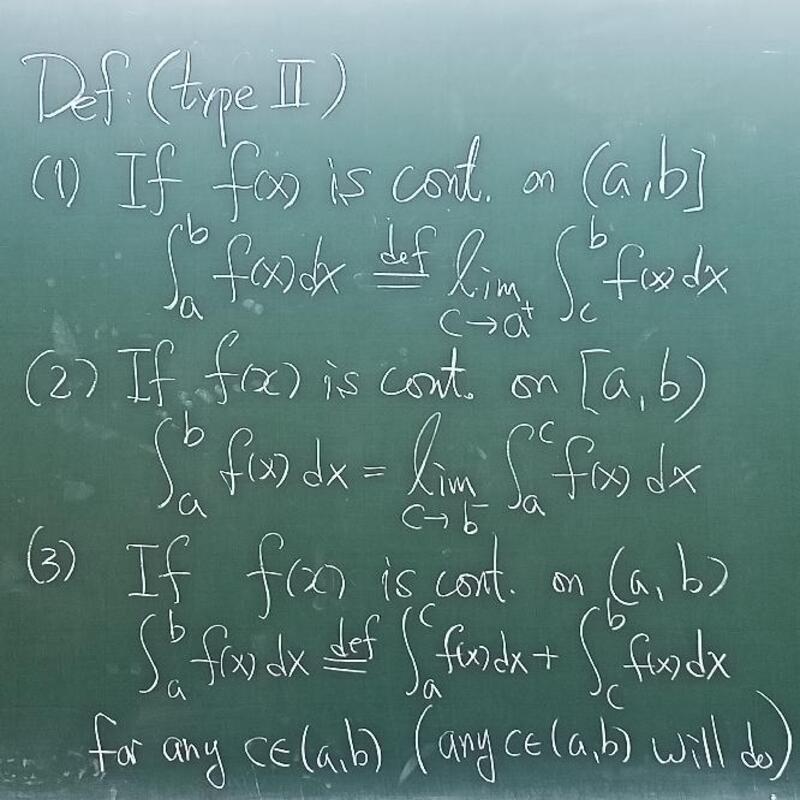 Def: (type II)
(1) If f(x) is cont. on (a,b]
∫_a^b f(x)dx ≝ lim_{c→a⁺} ∫_c^b f(x)dx
(2) If f(x) is cont. on [a,b)
∫_a^b f(x) dx = lim_{c→b⁻} ∫_a^c f(x) dx
(3) If f(x) is cont. on (a,b)
∫_a^b f(x)dx ≝ ∫_a^c f(x)dx + ∫_c^b f(x)dx
for any c∈(a,b) (any c∈(a,b) will do)